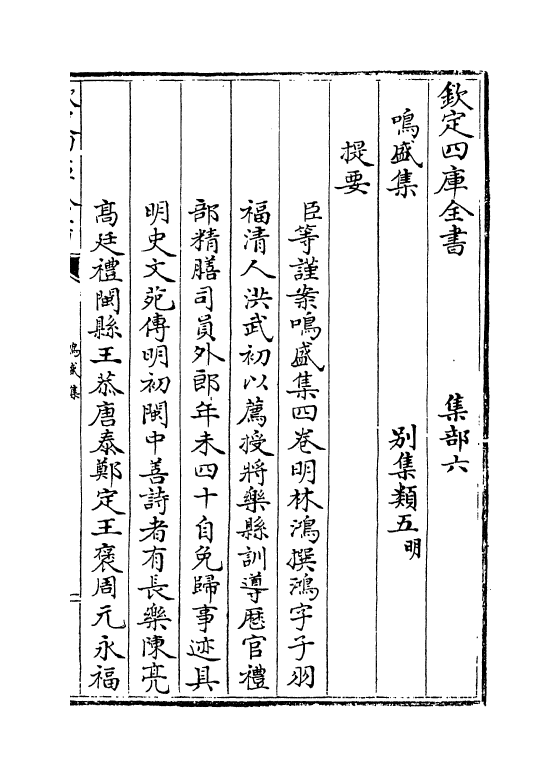 欽定四庫全書　集部六
鳴盛集　别集類五明
提要
臣等謹案鳴盛集四卷明林鴻撰鴻字子羽
福清人洪武初以薦授將樂縣訓導厯官禮
部精膳司員外郎年未四十自免歸事迹具
明史文苑傳明初閩中善詩者有長樂陳亮
髙廷禮閩縣王恭唐泰鄭定王褒周元永福
鳴盛集